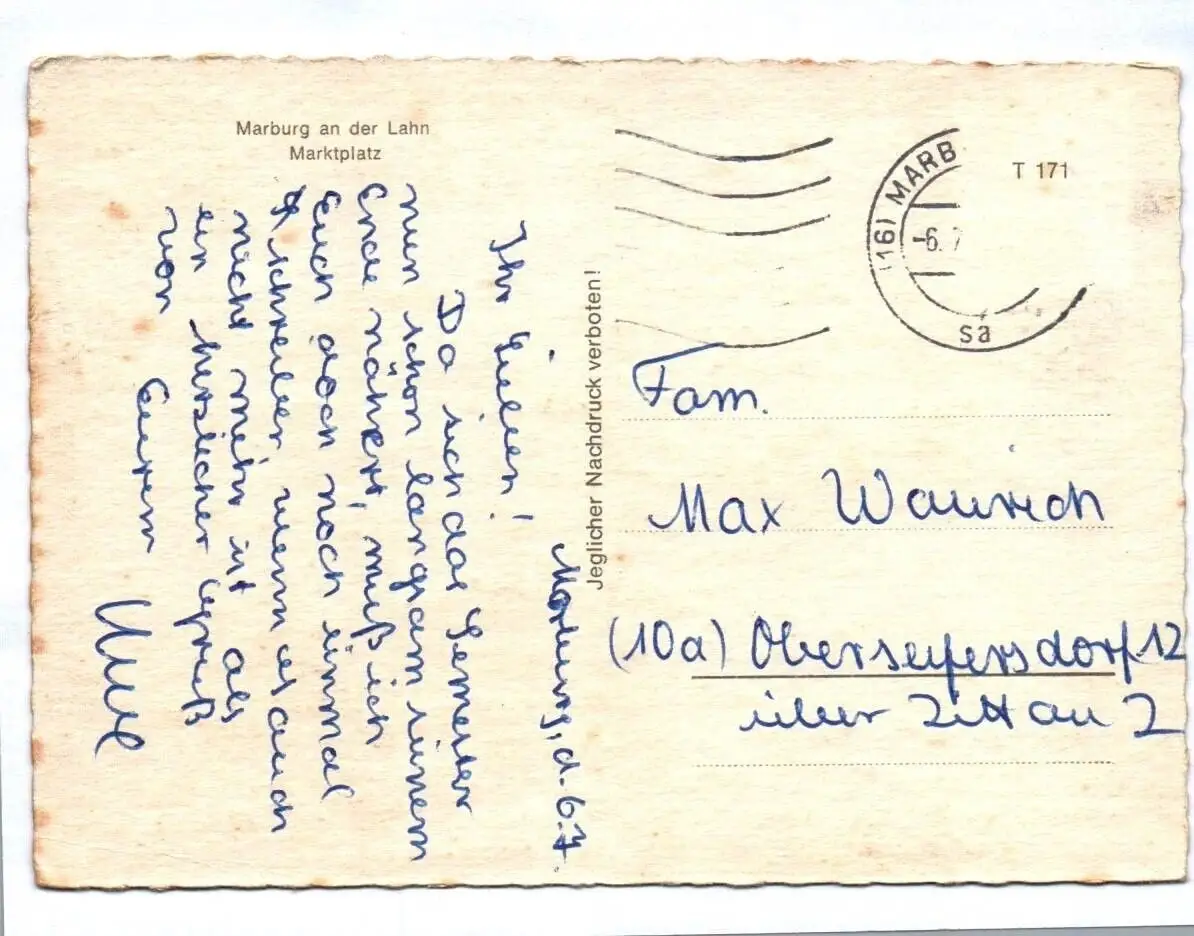 Marburg an der Lahn
Marktplatz
Marburg, d. 6.7.
Ihr Lieben!
Da sich das Semester
nun schon langsam seinem
Ende nähert, muß ich
Euch doch noch einmal
schreiben, wenn es auch
nicht mehr ist als
ein herzlicher Gruß
von Eurem
Jeglicher Nachdruck verboten!
(16) MARB
-6. 7
sa
T 171
Fam.
Max
(10a) Oberseifersdorf 12
über Zittau 2